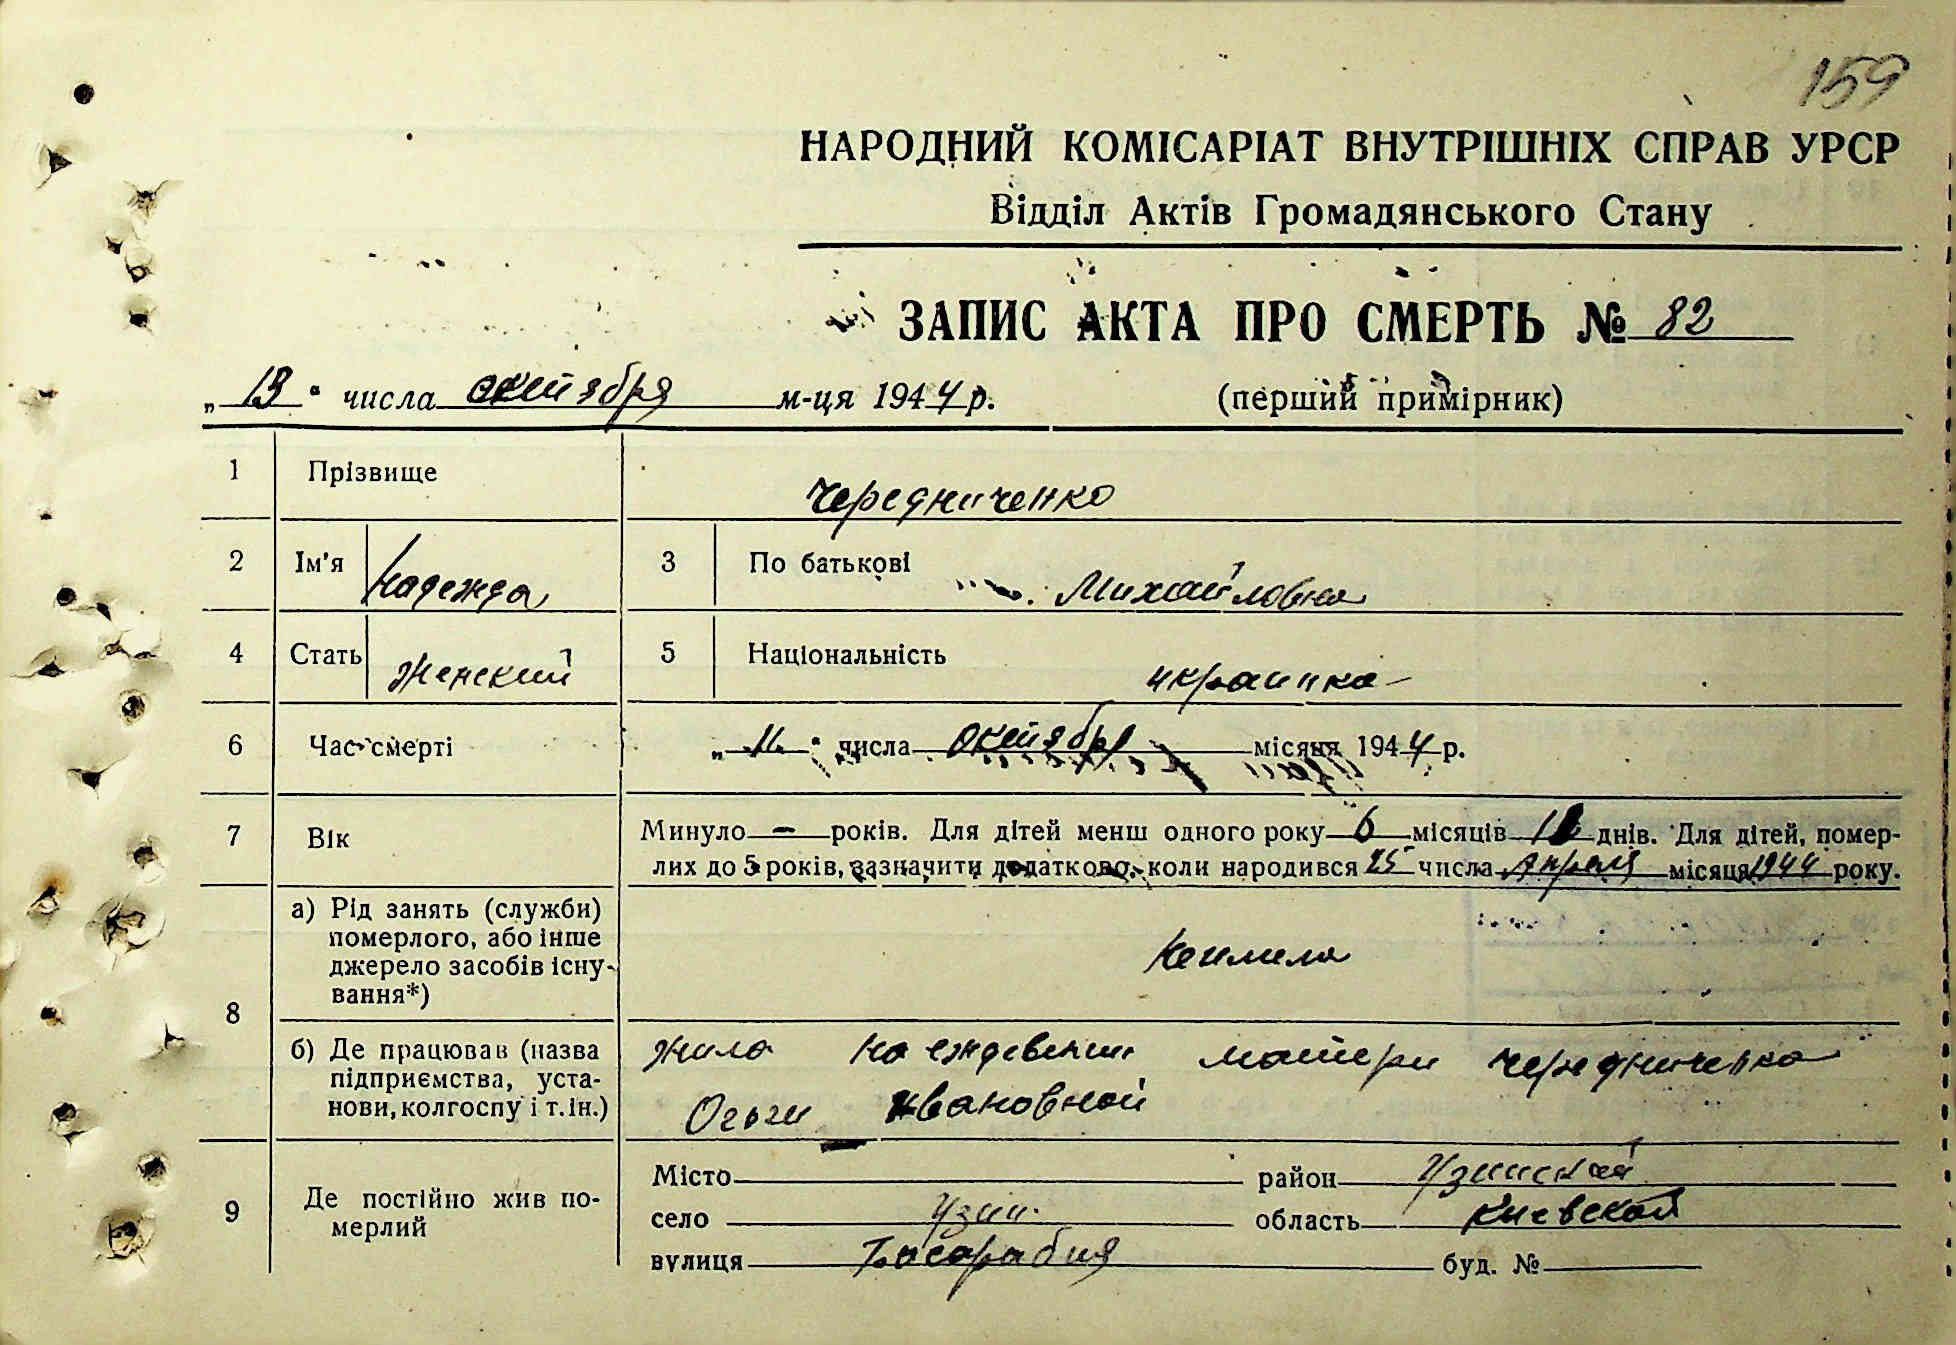 159
НАРОДНИЙ КОМІСАРІАТ ВНУТРІШНІХ СПРАВ УРСР
Відділ Актів Громадянського Стану
ЗАПИС АКТА ПРО СМЕРТЬ № 82
„13“ числа октября м-ця 1944 р. (перший примірник)
1 Прізвище Чередниченко
2 Ім'я Надежда 3 По батькові Михайловна
4 Стать Женский 5 Національність украинка
6 Час смерті „11“ числа октября місяця 1944 р.
7 Вік Минуло — років. Для дітей менш одного року 6 місяців днів. Для дітей, помер-
лих до 5 років, зазначити додатково, коли народився 25 числа Апреля місяця 1944 року.
8 а) Рід занять (служби)
померлого, або інше
джерело засобів існу-
вання*)
б) Де працював (назва
підприємства, уста-
нови, колгоспу і т. ін.)
жила на матери Чередниченко
Ивановной
9 Де постійно жив по-
мерлий
Місто район Узинский
село Узин область Киевской
вулиця буд. №